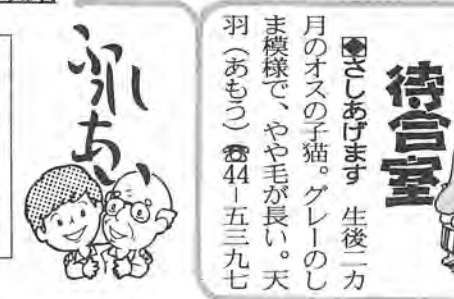 待合室
◈さしあげます　生後二カ
月のオスの子猫。グレーのし
ま模様で、やや毛が長い。天
羽（あもう）☎44－五三九七
ふれあい